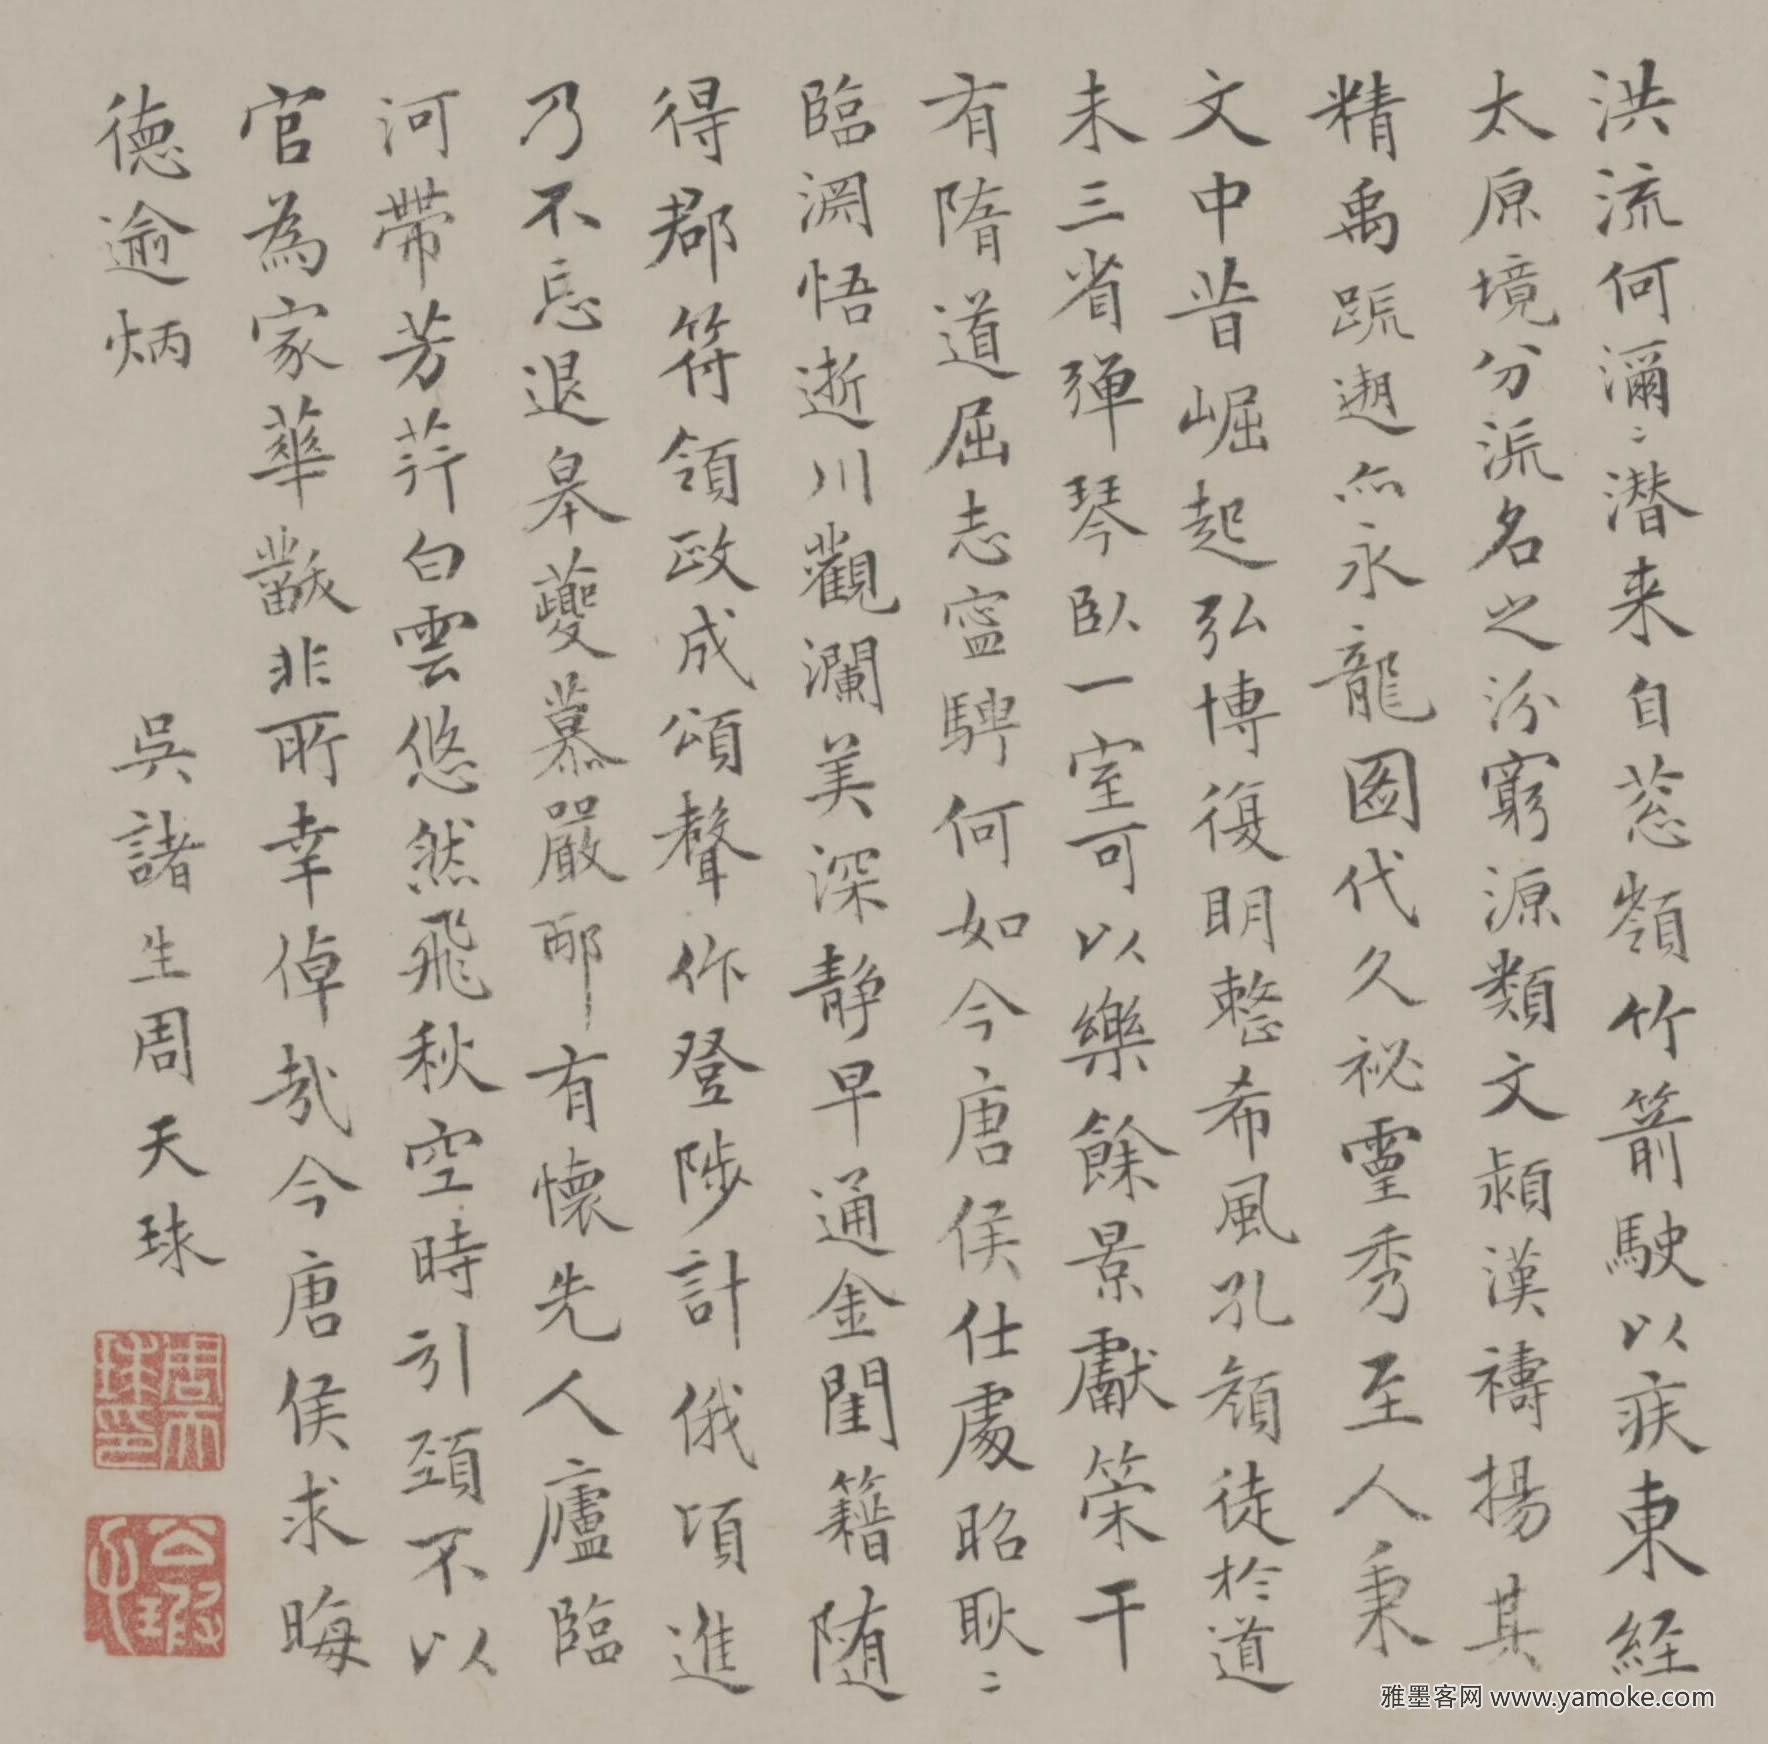 洪流何瀰〻潜来自葱嶺竹箭駛以疾東経
太原境分派名之汾窮源類文潁漢禱揚其
精禹跡邈亦永龍圖代久祕靈秀至人秉
文中昔崛起弘博復明整希風孔顔徒於道
未三省弾琴臥一室可以樂餘景獻策干
有隋道屈志寧騁何如今唐侯仕處昭耿〻
臨淵悟逝川觀瀾美深静早通金閨籍随
得郡符領政成頌聲作登陟計俄頃進
乃不忘退皋夔慕嚴邴有懷先人廬臨
河帶芳荇白雲悠然飛秋空時引頸不以
官為家華黻非所幸倬哉今唐侯求晦
德逾炳
吳諸生周天球
周天球印
公瑕
雅墨客网 www.yamoke.com